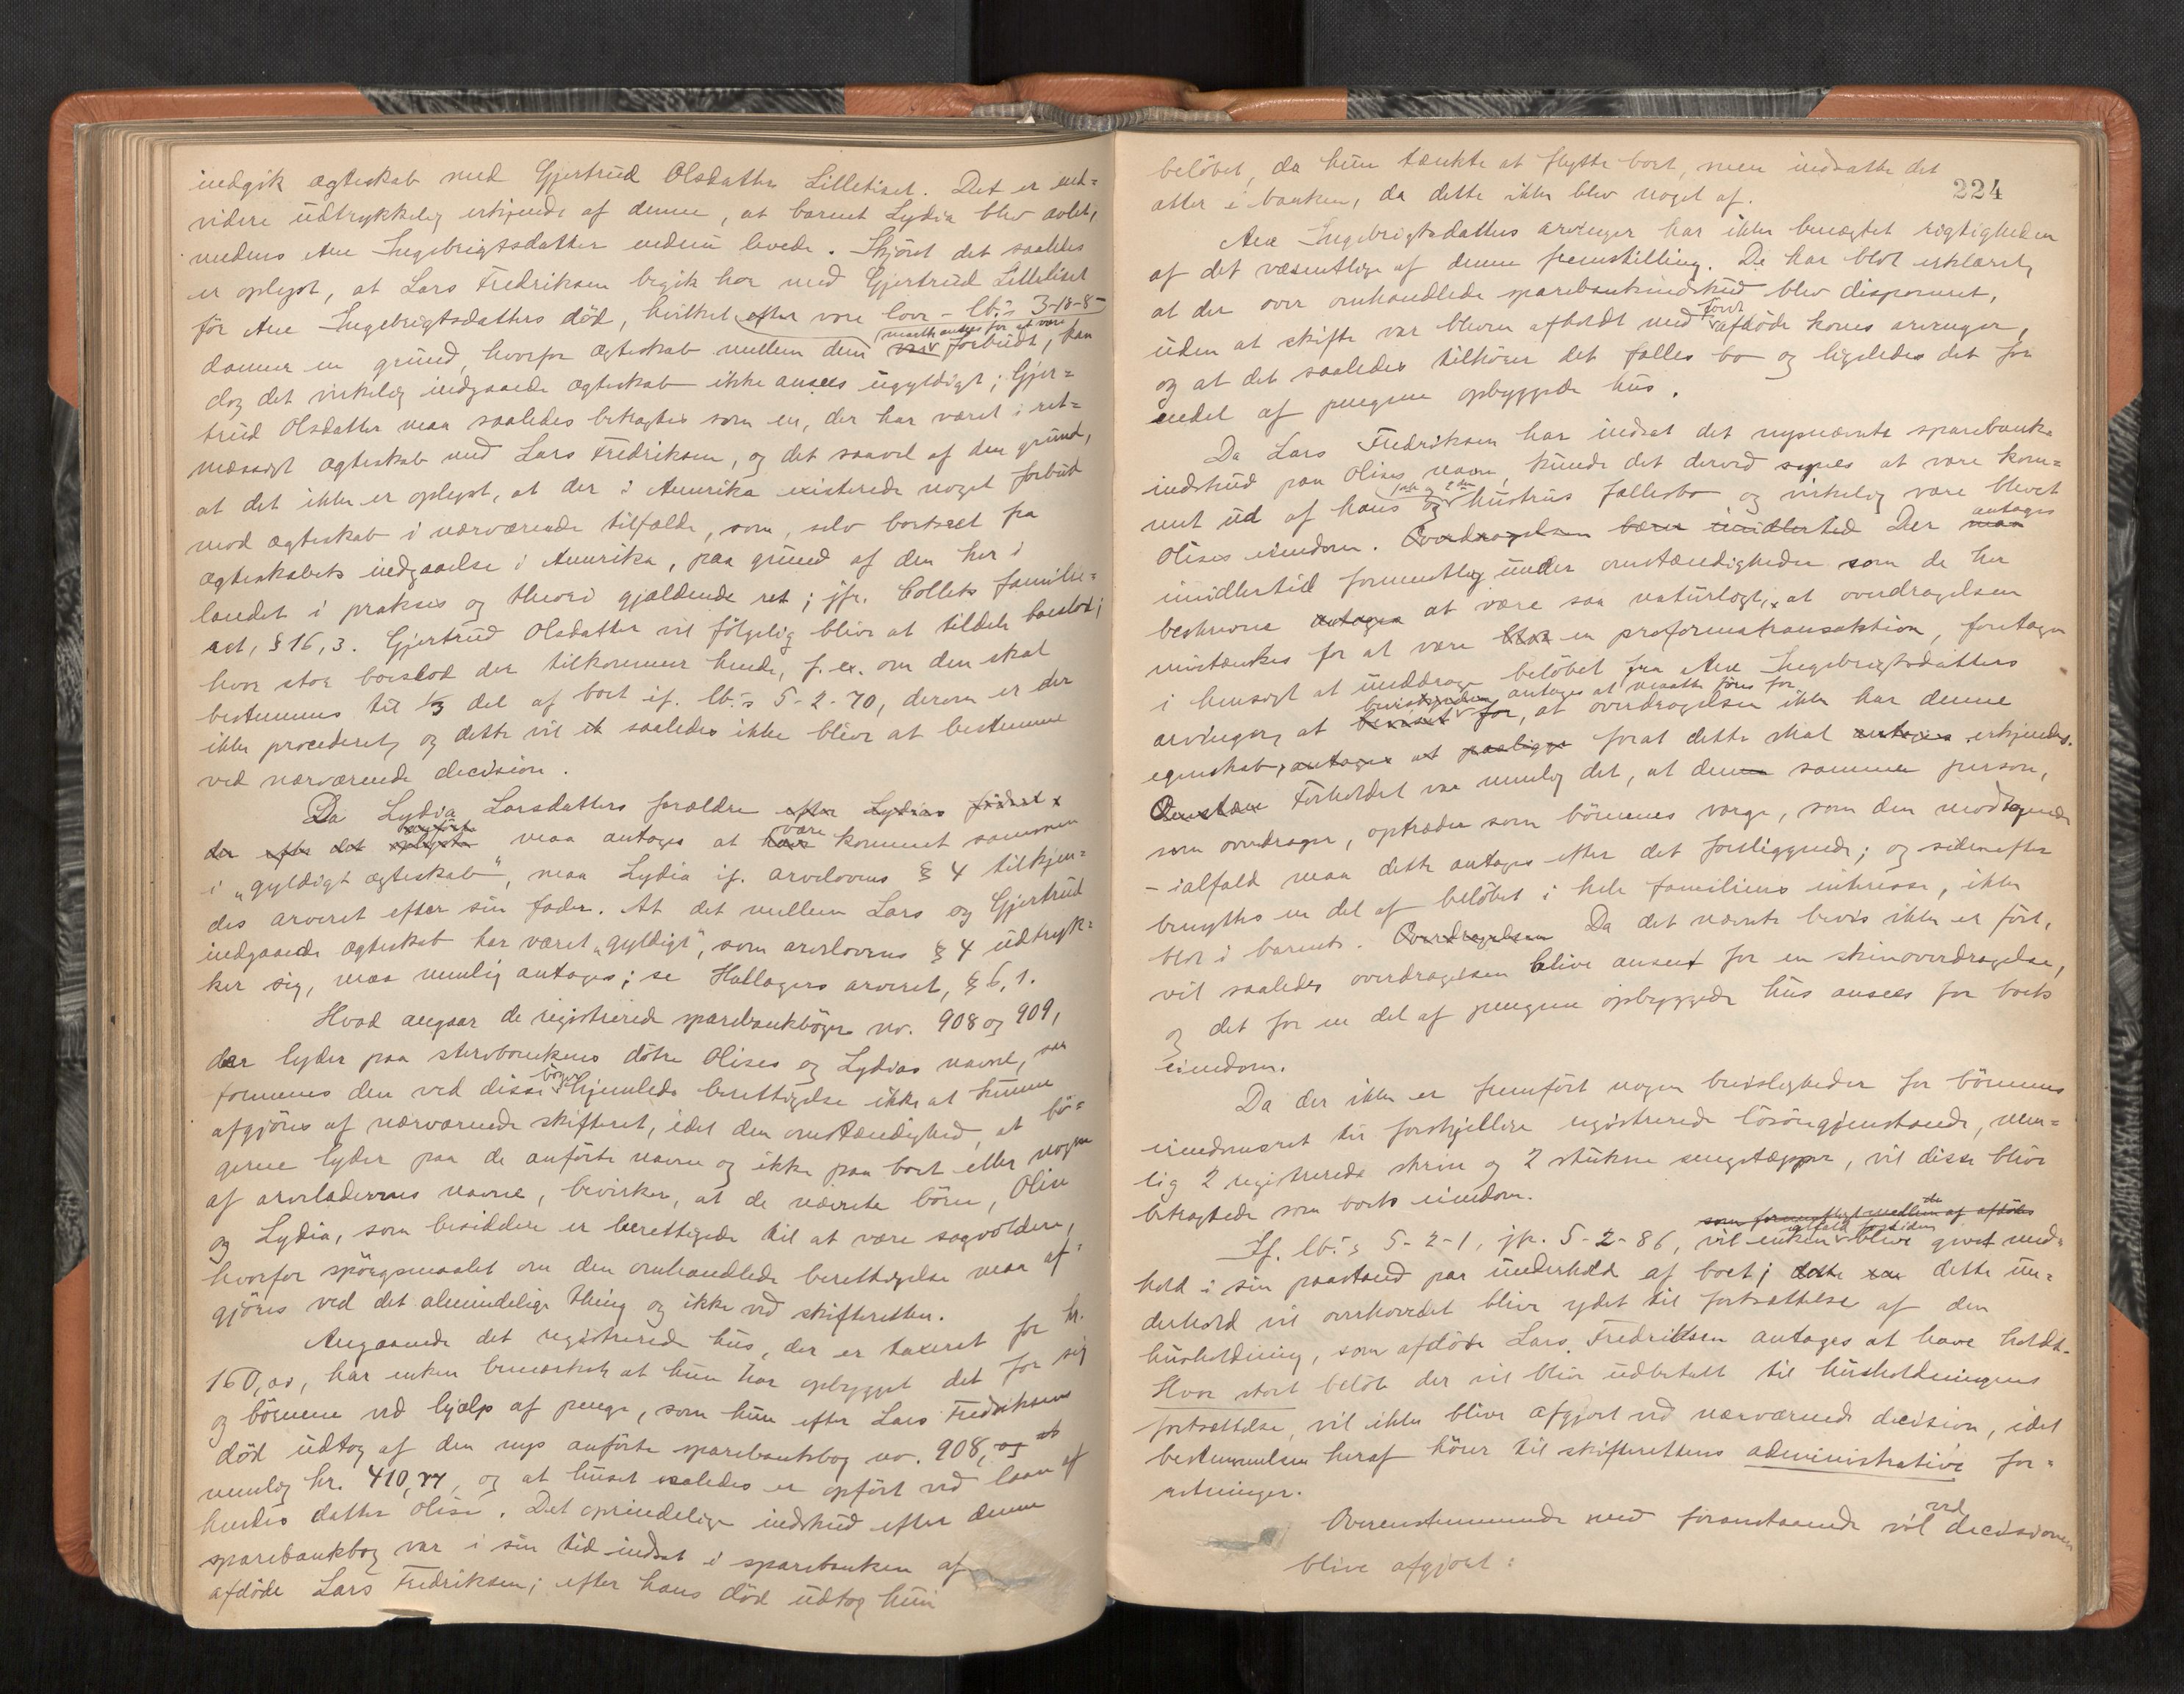 indgik ægteskab med Gjertrud Olsdatter Lilletiset. Det er end=
videre udtrykkelig erkjendt af denne, at barnet Lydia blev avlet,
medens Ane Ingebrigtsdatter endnu levede. Skjønt det saaledes
er oplyst, at Lars Fredriksen begik hor med Gjertrud Lilletiset
før Ane Ingebrigtsdatters død, hvilket efter vore love – lb.'s 3-18-8 –
maatte antages for at være
danner en grund, hvorfor ægteskab mellem dem var forbudt, kan
dog det virkelig indgaaede ægteskab ikke ansees ugyldigt; Gjer=
trud Olsdatter maa saaledes betragtes som en, der har været i ret=
mæssigt ægteskab med Lars Fredriksen, og det saavel af den grund,
at det ikke er oplyst, at der i Amerika existerede noget forbud
mod ægteskab i nærværende tilfælde, som, selv bortseet fra
ægteskabets indgaaelse i Amerika, paa grund af den her i
landet i praksis og theori gjældende ret; jfr. Collets familie=
ret, § 16,3. Gjertrud Olsdatter vil følgelig blive at tildele boeslod;
hvor stor boeslod der tilkommer hende, f. ex. om den skal
bestemmes til 1/3 del af boet if. lb.'s 5-2-70, derom er der
ikke procederet, og dette vil et saaledes ikke blive at bestemme
ved nærværende decision.
Da Lydia Larsdatters forældre efter Lydias fødsel
anførte være
der efter det oplyste maa antages at have kommet sammen
i "gyldigt ægteskab", maa Lydia if. arvelovens § 4 tilkjen=
des arveret efter sin fader. At det mellem Lars og Gjertrud
indgaaede ægteskab har været "gyldigt", som arvelovens § 4 udtryk=
ker sig, maa nemlig antages; se Hallagers arveret, § 6, 1.
Hvad angaar de registrerede sparebankbøger no. 908 og 909,
der lyder paa stervboenkens døtre Olises og Lydias navne, saa
bøger
formenes den ved disse hjemlede berettigelse ikke at kunne
afgjøres af nærværende skifteret, idet den omstændighed, at bø=
gerne lyder paa de anførte navne og ikke paa boet eller nogen
af arveladernes navne, bevirker, at de nævnte børn, Olise
og Lydia, som besiddere er berettigede til at være sagvoldere,
hvorfor spørgsmaalet om den omhandlede berettigelse maa af=
gjøres ved det almindelige thing og ikke ved skifteretten.
Angaaende det registrerede hus, der er taxeret for kr.
160,00, har enken bemærket, at hun har opbygget det for sig
og børnene ved hjælp af penge, som hun efter Lars Fredriksens
død udtog af den nys anførte sparebankbog no. 908, og at
nemlig kr. 410,77, og at huset saaledes er opført ved laan af
hendes datter Olise. Det oprindelige indskud efter denne
sparebankbog var i sin tid indsat i sparebanken af
afdøde Lars Fredriksen; efter hans død udtog hun
224
beløbet, da hun tænkte at flytte bort, men indsatte det
atter i banken, da dette ikke blev noget af.
Ane Ingebrigtsdatters arvinger har ikke benægtet rigtigheden
af det væsentlige af denne fremstilling. De har blot erklæret,
at der over omhandlede sparebankindskud blev disponeret,
først
uden at skifte var bleven afholdt med afdøde kones arvinger,
og at det saaledes tilhører det fælles bo og ligeledes det for
endel af pengene opbyggede hus.
Da Lars Fredriksen har indsat det nysnævnte sparebank=
indskud paa Olises navn, kunde det derved synes at være kom=
første og 2den
met ud af hans og hustrus fællesbo og virkelig være blevet
antages
Olises eiendom. Overdragelsen bærer imidlertid Der maa
imidlertid formentlig under omstændigheder som de her
beskrevne antages at være saa naturligt, at overdragelsen
mistænkes for at være blot en proformatransaktion, foretagen
i hensigt at unddrage beløbet fra Ane Ingebrigtsdatters
antages at maatte føres for
arvinger, at beviset for, at overdragelsen ikke har denne
egenskab, antages at paaligge forat dette skal antages erkjendes.
Omstæn Forholdet var nemlig det, at denne samme person,
som overdrager, optræder som børnenes værge, som den modtagende
– ialfald maa dette antages efter det foreliggende; og sidenefter
benyttes en del af beløbet i hele familiens interesse, ikke
blot i barnets. Overdragelsen Da det nævnte bevis ikke er ført,
vil saaledes overdragelsen blive anseet for en skinoverdragelse,
og det for en del af pengene opbyggede hus ansees for boets
eiendom.
Da der ikke er fremført nogen bevisligheder for børnenes
eiendomsret til forskjellige registrerede løsøregjenstande, nem=
lig 2 registrerede skrin og 2 stukne sengetæpper, vil disse blive
betragtede som boets eiendom.
som formentligt medlem af afdødes
ialfald fortiden
If. lb.'s 5-2-1, jfr. 5-2-86, vil enken blive givet med=
hold i sin paastand paa underhold af boet; dette dette un=
derhold vil overhovedet blive ydet til fortsættelse af den
husholdning, som afdøde Lars Fredriksen antages at have holdt.
Hvor stort beløb der vil blive udbetalt til husholdningens
fortsættelse, vil ikke blive afgjort ved nærværende decision, idet
bestemmelsen heraf hører til skifterettens administrative for=
retninger.
ved
Overensstemmende med foranstaaende vil decisionen
blive afgjort: